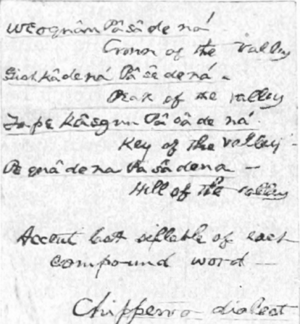 Weoquân Pâ sâ de ná
Crown of the Valley
Gish kâ de ná Pâ sâ de ná -
Peak of the valley
Tape Kâegun Pâ sâ de ná
Key of the valley -
Pe quâ de na Pâ sâ de na -
Hill of the valley
Accent last sillable of each
compound word -
Chippewa dialect